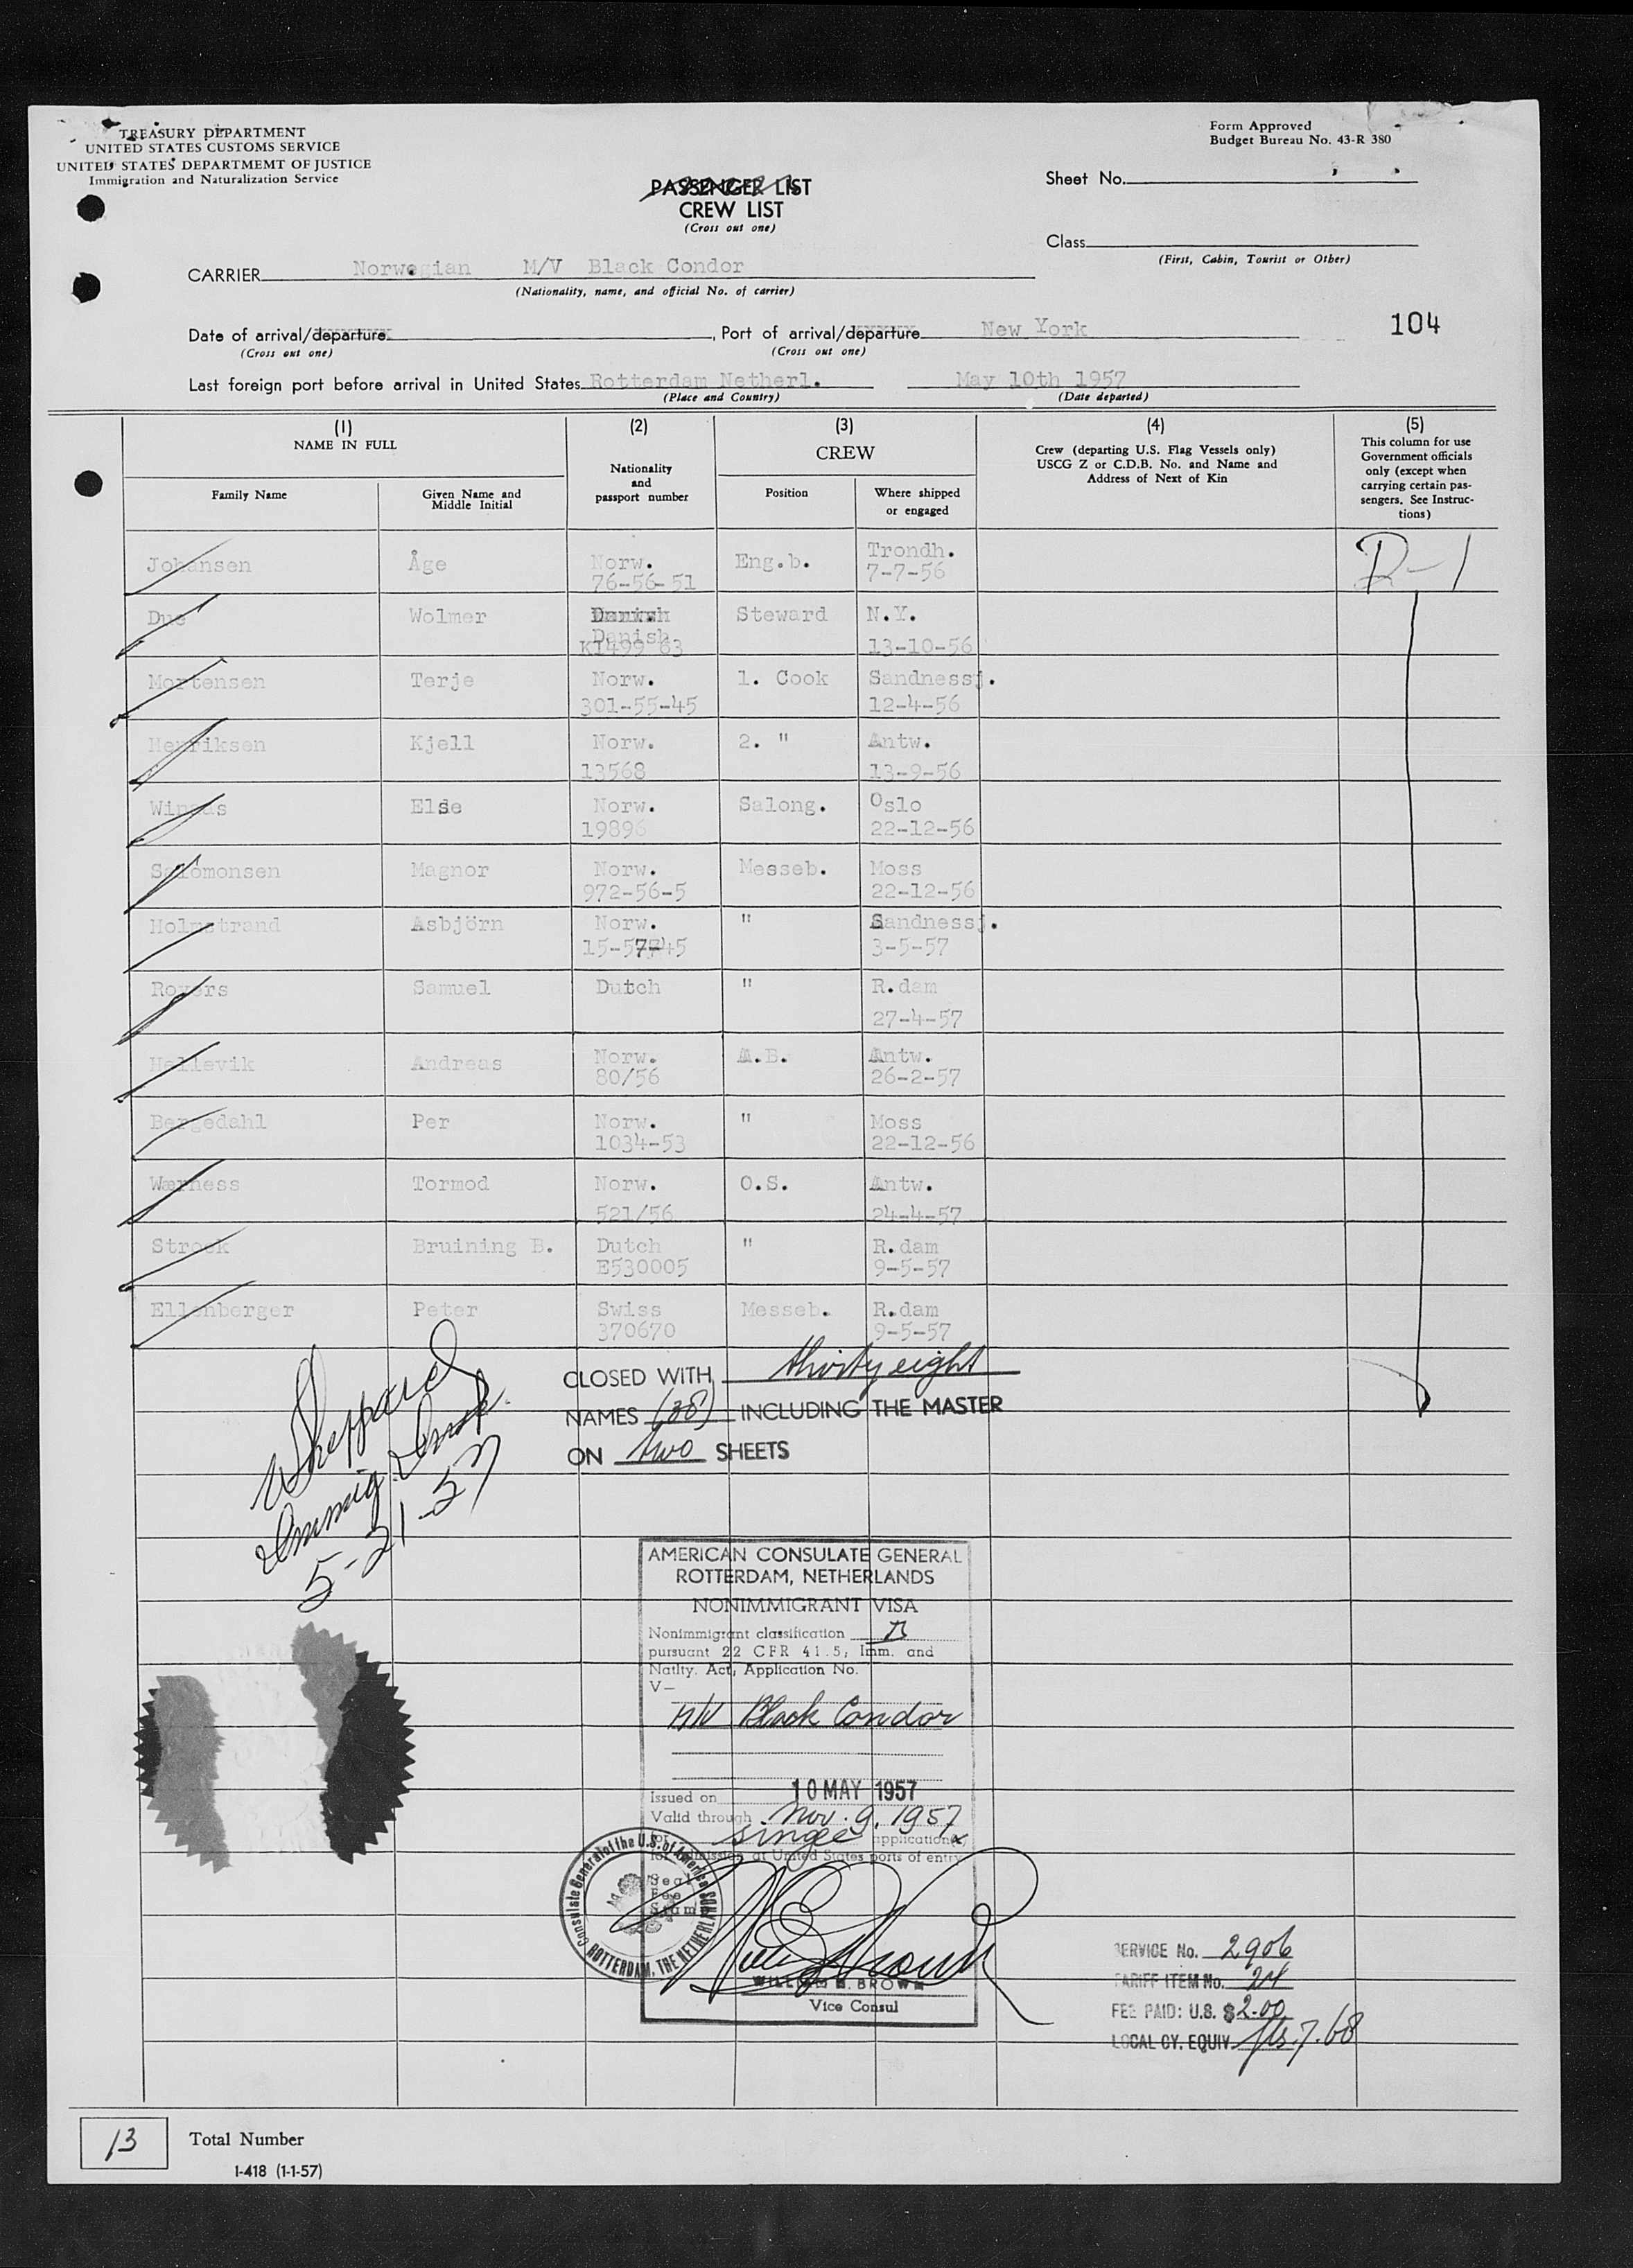 TREASURY DEPARTMENT
UNITED STATES CUSTOMS SERVICE
UNITED STATES DEPARTMEMT OF JUSTICE
Immigration and Naturalization Service
Form Approved
Budget Bureau No. 43-R 380
Sheet No.
PASSENGER LIST
CREW LIST
(Cross out one)
Class
(First, Cabin, Tourist or Other)
CARRIER Norwegian M/V Black Condor
(Nationality, name, and official No. of carrier)
Date of arrival/departure , Port of arrival/departure New York
(Cross out one) (Cross out one)
104
Last foreign port before arrival in United States Rotterdam Netherl. May 10th 1957
(Place and Country) (Date departed)
(1) (2) (3) (4) (5)
NAME IN FULL
Family Name
Given Name and
Middle Initial
Nationality
and
passport number
CREW
Position
Where shipped
or engaged
Crew (departing U.S. Flag Vessels only)
USCG Z or C.D.B. No. and Name and
Address of Next of Kin
This column for use
Government officials
only (except when
carrying certain pas-
sengers. See Instruc-
tions)
Johansen Åge Norw. Eng.b. Trondh. D-1
76-56-51 7-7-56
Due Wolmer Danish Steward N.Y.
Danish
K1499 63 13-10-56
Mortensen Terje Norw. 1. Cook Sandnessj.
301-55-45 12-4-56
Henriksen Kjell Norw. 2. " Antw.
13568 13-9-56
Else Norw. Salong. Oslo
19896 22-12-56
Salomonsen Magnor Norw. Messeb. Moss
972-56-5 22-12-56
Holmstrand Asbjörn Norw. " Sandnessj.
3-5-57
Samuel Dutch " R.dam
27-4-57
Hellevik Andreas Norw. A.B. Antw.
80/56 26-2-57
Bergedahl Per Norw. " Moss
1034-53 22-12-56
Wærness Tormod Norw. O.S. Antw.
521/56 24-4-57
Strook Bruining B. Dutch " R.dam
E530005 9-5-57
Ellenberger Peter Swiss Messeb. R.dam
370670 9-5-57
CLOSED WITH thirty eight
NAMES (38) INCLUDING THE MASTER
ON two SHEETS
Sheppard
Immig. Insp.
5-21-57
AMERICAN CONSULATE GENERAL
ROTTERDAM, NETHERLANDS
NONIMMIGRANT VISA
Nonimmigrant classification D
pursuant 22 CFR 41.5, Imm. and
Natlty. Act, Application No.
V—
M/V Black Condor
Issued on 10 MAY 1957
Valid through Nov. 9, 1957
for single application
for admission at United States ports of entry
Seal
Fee
Consulate General of the U.S. of America
ROTTERDAM, THE NETHERLANDS
WILLIAM E. BROWN
Vice Consul
SERVICE No. 2906
TARIFF ITEM No. 24
FEE PAID: U.S. $2.00
LOCAL CY. EQUIV. fls. 7.68
13 Total Number
I-418 (1-1-57)